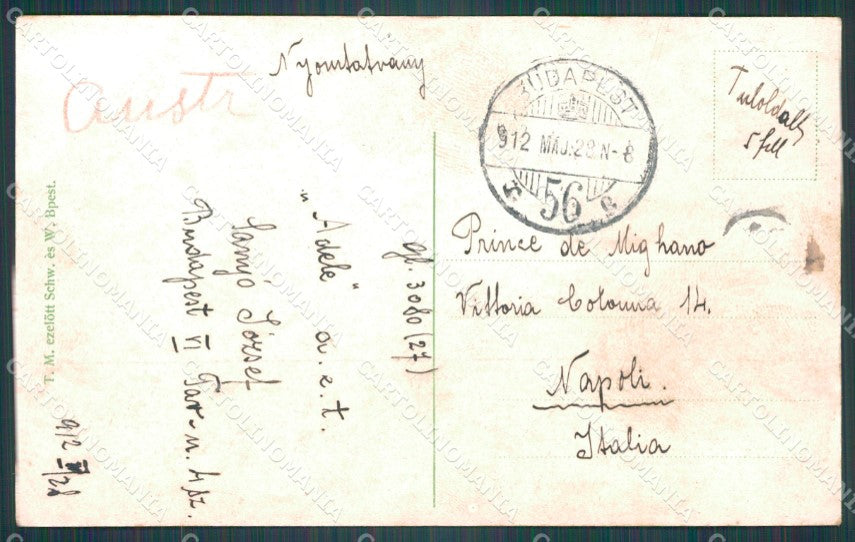 Nyomtatvany
Austr
BUDAPEST
912 MÁJ. 28. N-8
56
Tuloldalt
5 fill
Prince de Mighano
Vittoria Colonna 14.
Napoli.
Italia
gl. 3080 (27)
"Adele" a.e.t.
József
Budapest VI
4 sz.
912 V/28
T. M. ezelött Schw. és W. Bpest.
CARTOLINOMANIA